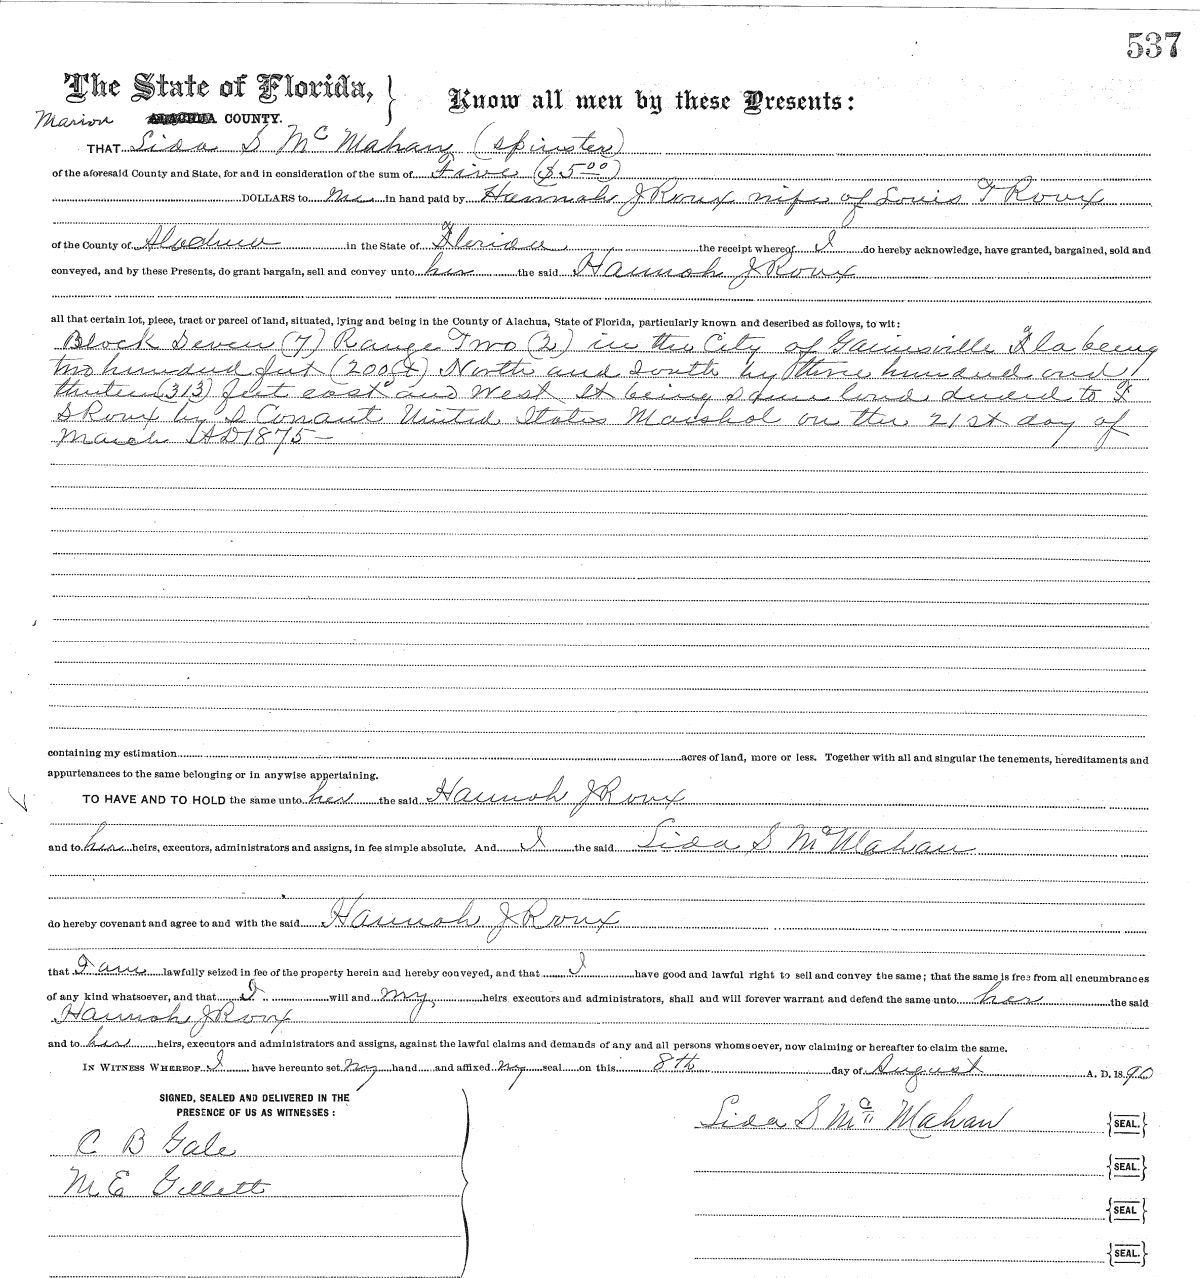 537
The State of Florida, } Know all men by these Presents:
Marion ALACHUA COUNTY.
THAT Lida S McMahan (spinster)
of the aforesaid County and State, for and in consideration of the sum of Five ($5.00)
DOLLARS to me in hand paid by Hannah J Roux wife of Louis F Roux
of the County of Alachua in the State of Florida the receipt whereof I do hereby acknowledge, have granted, bargained, sold and
conveyed, and by these Presents, do grant bargain, sell and convey unto her the said Hannah J Roux
all that certain lot, piece, tract or parcel of land, situated, lying and being in the County of Alachua, State of Florida, particularly known and described as follows, to wit:
Block Seven (7) Range Two (2) in the City of Gainesville Fla being
two hundred feet (200 ft) North and South by three hundred and
thirteen (313) feet east and West It being same land deeded to F
S Roux by S Conant United States Marshal on the 21st day of
March AD 1875 -
containing my estimation acres of land, more or less. Together with all and singular the tenements, hereditaments and
appurtenances to the same belonging or in anywise appertaining.
TO HAVE AND TO HOLD the same unto her the said Hannah J Roux
and to her heirs, executors, administrators and assigns, in fee simple absolute. And I the said Lida S McMahan
do hereby covenant and agree to and with the said Hannah J Roux
that I am lawfully seized in fee of the property herein and hereby conveyed, and that I have good and lawful right to sell and convey the same; that the same is free from all encumbrances
of any kind whatsoever, and that I will and my heirs executors and administrators, shall and will forever warrant and defend the same unto her the said
Hannah J Roux
and to her heirs, executors and administrators and assigns, against the lawful claims and demands of any and all persons whomsoever, now claiming or hereafter to claim the same.
IN WITNESS WHEREOF I have hereunto set my hand and affixed my seal on this 8th day of August A. D. 1890
SIGNED, SEALED AND DELIVERED IN THE
PRESENCE OF US AS WITNESSES:
Lida S McMahan {SEAL.}
C B Gale
{SEAL.}
M E Gillett
{SEAL}
{SEAL.}